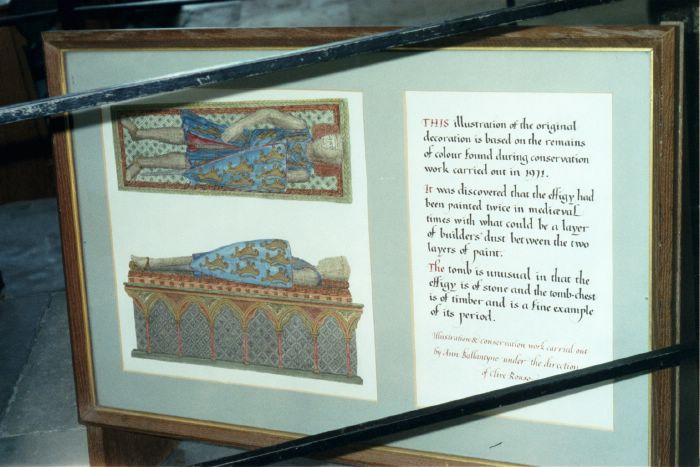 THIS illustration of the original
decoration is based on the remains
of colour found during conservation
work carried out in 1971.
It was discovered that the effigy had
been painted twice in mediæval
times with what could be a layer
of builders' dust between the two
layers of paint.
The tomb is unusual in that the
effigy is of stone and the tomb-chest
is of timber and is a fine example
of its period.
Illustration & conservation work carried out
by Ann Ballantyne under the direction
of Clive Rouse